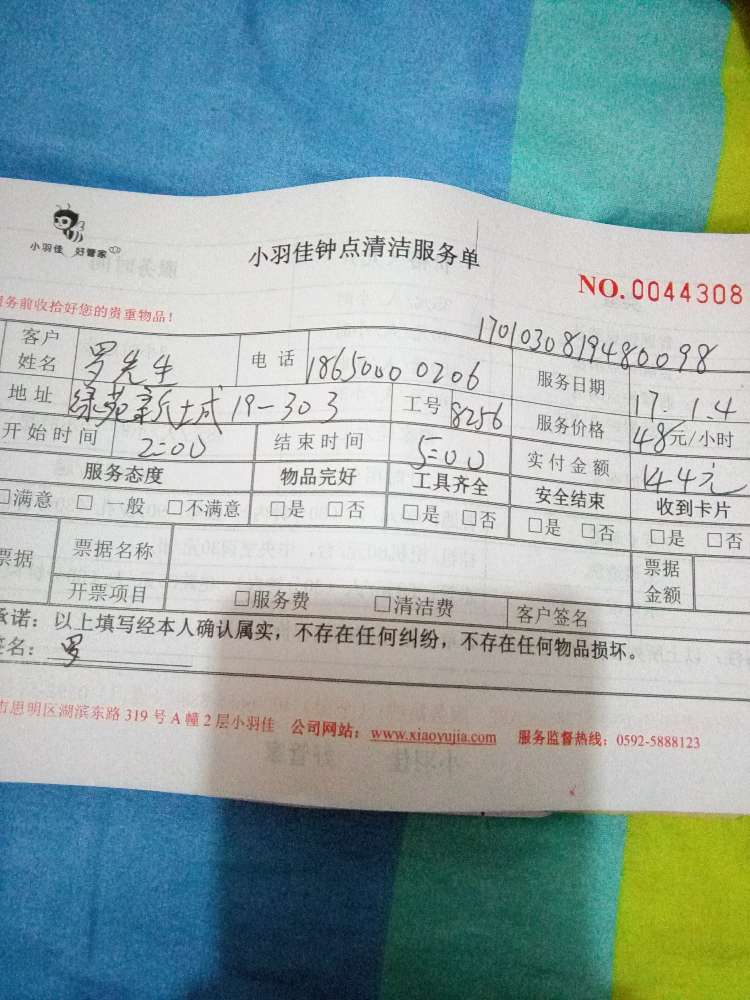 小羽佳 好管家
小羽佳钟点清洁服务单
NO.0044308
务前收拾好您的贵重物品！
1701030819480098
客户姓名 罗先生 电话 18650000206 服务日期 17.1.4
地址 绿苑新城 19-303 工号 8256 服务价格 48元/小时
开始时间 2:00 结束时间 5:00 实付金额 144元
服务态度 物品完好 工具齐全 安全结束 收到卡片
□满意 □一般 □不满意 □是 □否 □是 □否 □是 □否 □是 □否
票据 票据名称 票据金额
开票项目 □服务费 □清洁费 客户签名
承诺：以上填写经本人确认属实，不存在任何纠纷，不存在任何物品损坏。
签名：罗
市思明区湖滨东路319号A幢2层小羽佳 公司网站：www.xiaoyujia.com 服务监督热线：0592-5888123